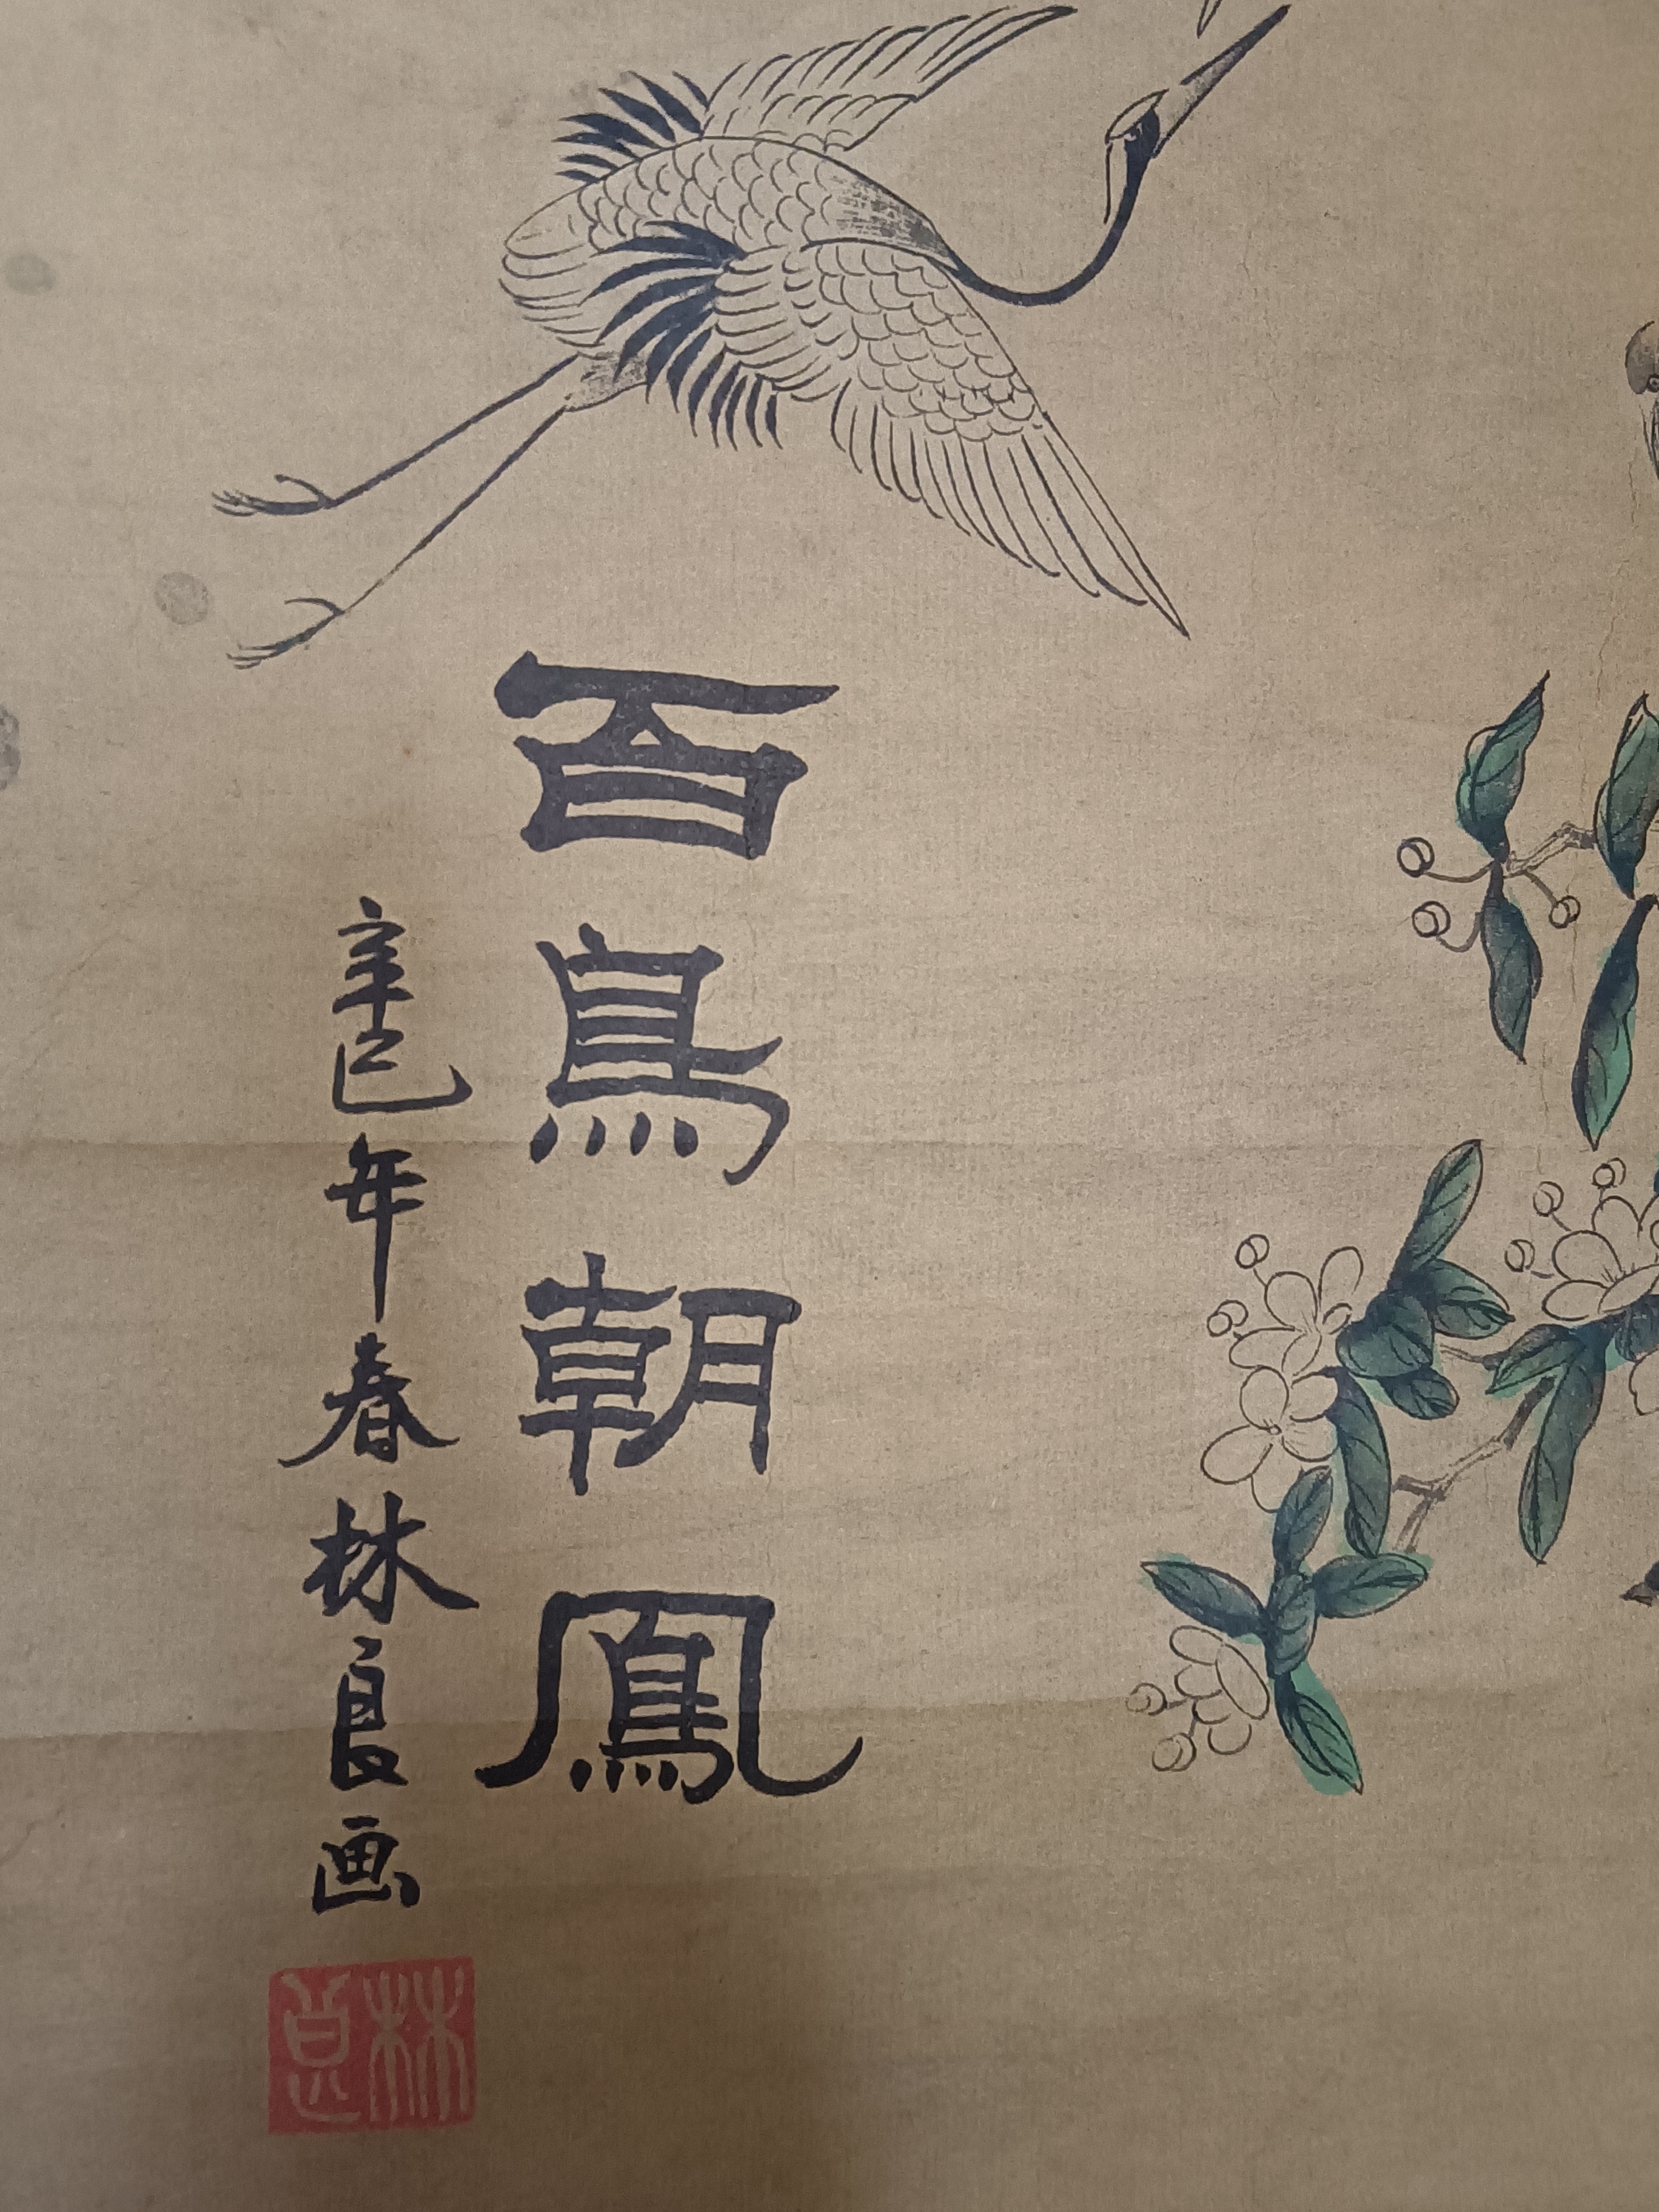 百鳥朝鳳
辛巳年春林良画
林良